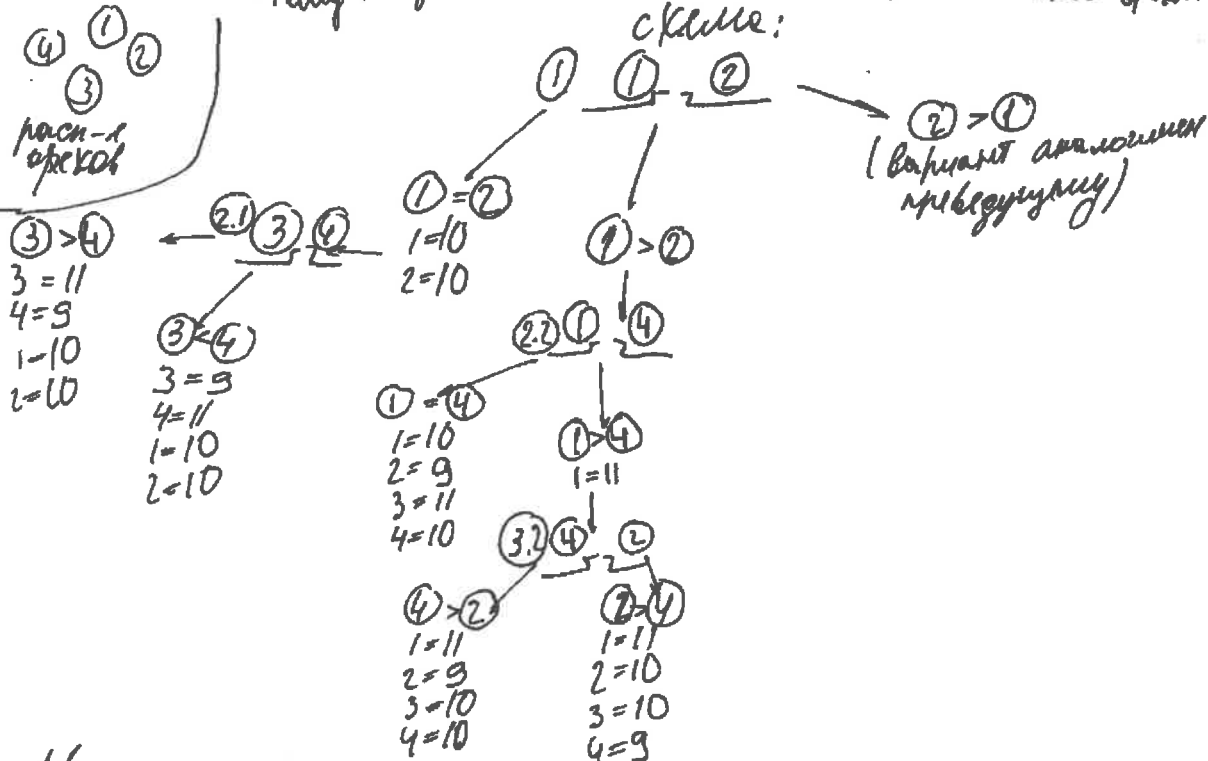 схема:
4 1 2
3
расп-е
орехов
1 1 2
2 > 1
(вариант аналогичен
предыдущему)
1 = 2
1=10
2=10
1 > 2
2.1 3 4
3 > 4
3 = 11
4=9
1=10
2=10
3 < 4
3=9
4=11
1=10
2=10
2.2 1 4
1 = 4
1=10
2=9
3=11
4=10
1 > 4
1=11
3.2 4 2
4 > 2
1=11
2=9
3=10
4=10
2 > 4
1=11
2=10
3=10
4=9